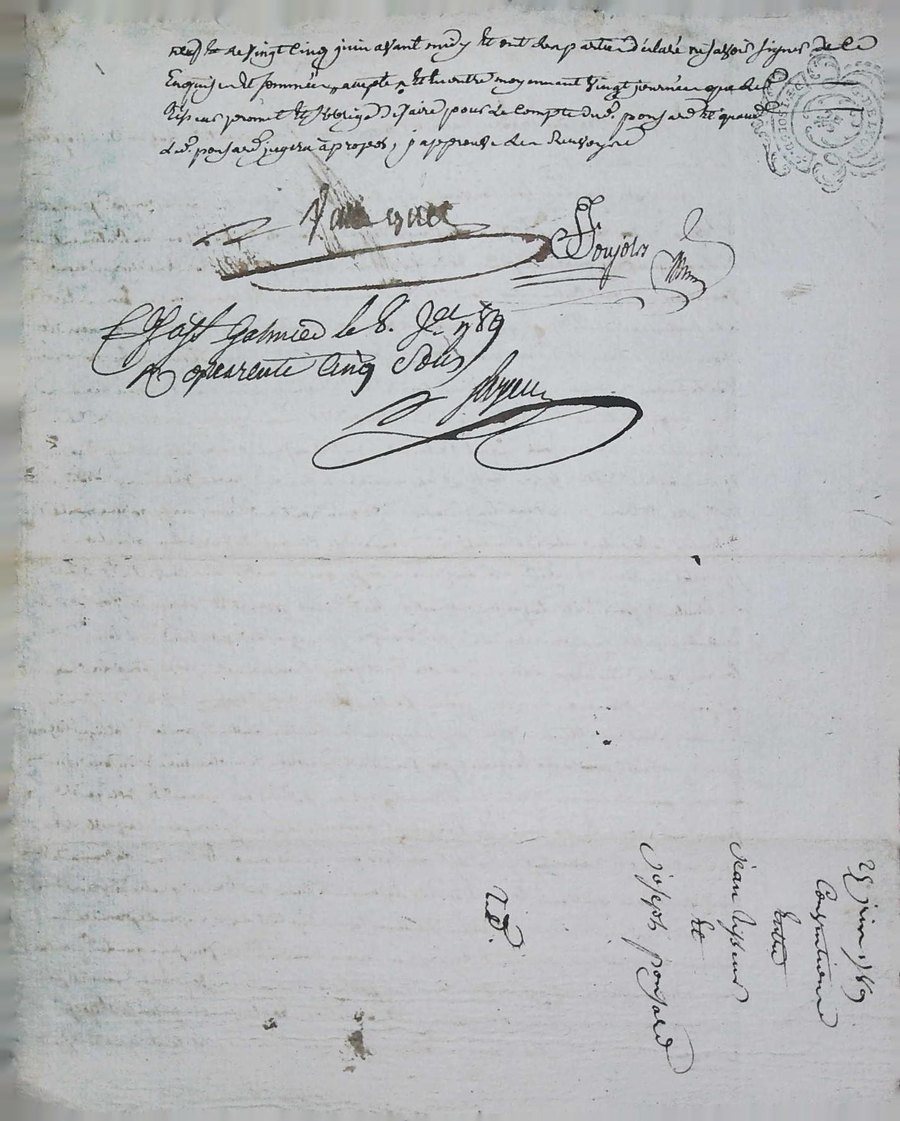 neuf le vingt cinq juin avant midy Et ont les parties déclaré ne savoir signer de ce
Enquis et sommées, accepté Et En outre moyennant vingt journées que led.
Tisseur promet Et s'oblige de faire pour le compte dud. ponsard Et quand
led. ponsard jugera à propos, j'approuve le Renvoye
Poujols
St galmier le 8. Jet 1789
R quarente cinq sous
25 juin 1789
Conventions
Entre
Jean Tisseur
Et
Joseph ponsard